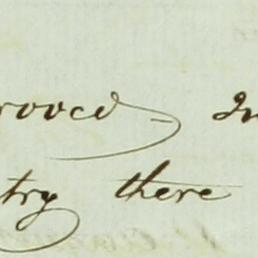 rooved In
try there